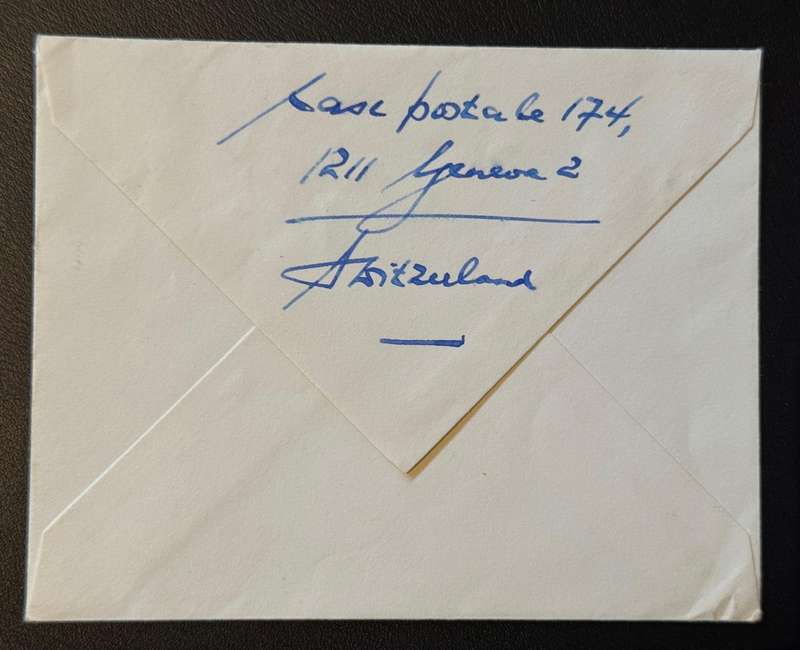 Case postale 174,
1211 Geneva 2
Switzerland